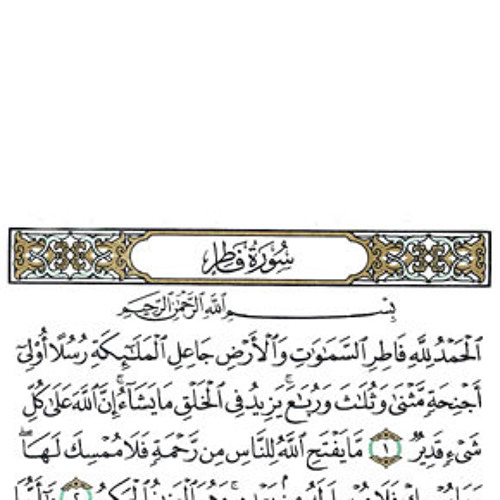 سُورَةُ فَاطِرٍ
بِسْمِ ٱللَّهِ ٱلرَّحْمَٰنِ ٱلرَّحِيمِ
ٱلْحَمْدُ لِلَّهِ فَاطِرِ ٱلسَّمَٰوَٰتِ وَٱلْأَرْضِ جَاعِلِ ٱلْمَلَٰٓئِكَةِ رُسُلًا أُو۟لِىٓ
أَجْنِحَةٍ مَّثْنَىٰ وَثُلَٰثَ وَرُبَٰعَ ۚ يَزِيدُ فِى ٱلْخَلْقِ مَا يَشَآءُ ۚ إِنَّ ٱللَّهَ عَلَىٰ كُلِّ
شَىْءٍ قَدِيرٌ ١ مَّا يَفْتَحِ ٱللَّهُ لِلنَّاسِ مِن رَّحْمَةٍ فَلَا مُمْسِكَ لَهَا ۖ